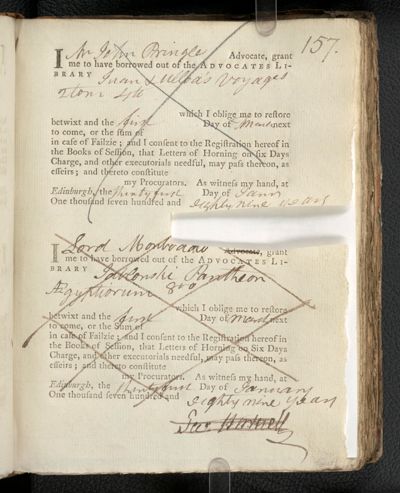 157.
I Mr John Pringle Advocate, grant
me to have borrowed out of the ADVOCATES LI-
BRARY Juan & Ulloa's Voyages
2 tom 4to
which I oblige me to restore
betwixt and the first Day of March next
to come, or the sum of
in case of Failzie; and I consent to the Registration hereof in
the Books of Session, that Letters of Horning on six Days
Charge, and other executorials needful, may pass thereon, as
effeirs; and thereto constitute
my Procurators. As witness my hand, at
Edinburgh, the thirty first Day of Janry
One thousand seven hundred and eighty nine years
I Lord Monboddo Advocate, grant
me to have borrowed out of the ADVOCATES LI-
BRARY Jablonski Pantheon
Ægyptiorum 8vo
which I oblige me to restore
betwixt and the first Day of March next
to come, or the Sum of
in case of Failzie; and I consent to the Registration hereof in
the Books of Session, that Letters of Horning on Six Days
Charge, and other executorials needful, may pass thereon, as
effeirs; and thereto constitute
my Procurators. As witness my hand, at
Edinburgh, the thirty first Day of January
One thousand seven hundred and eighty nine years
Boswell